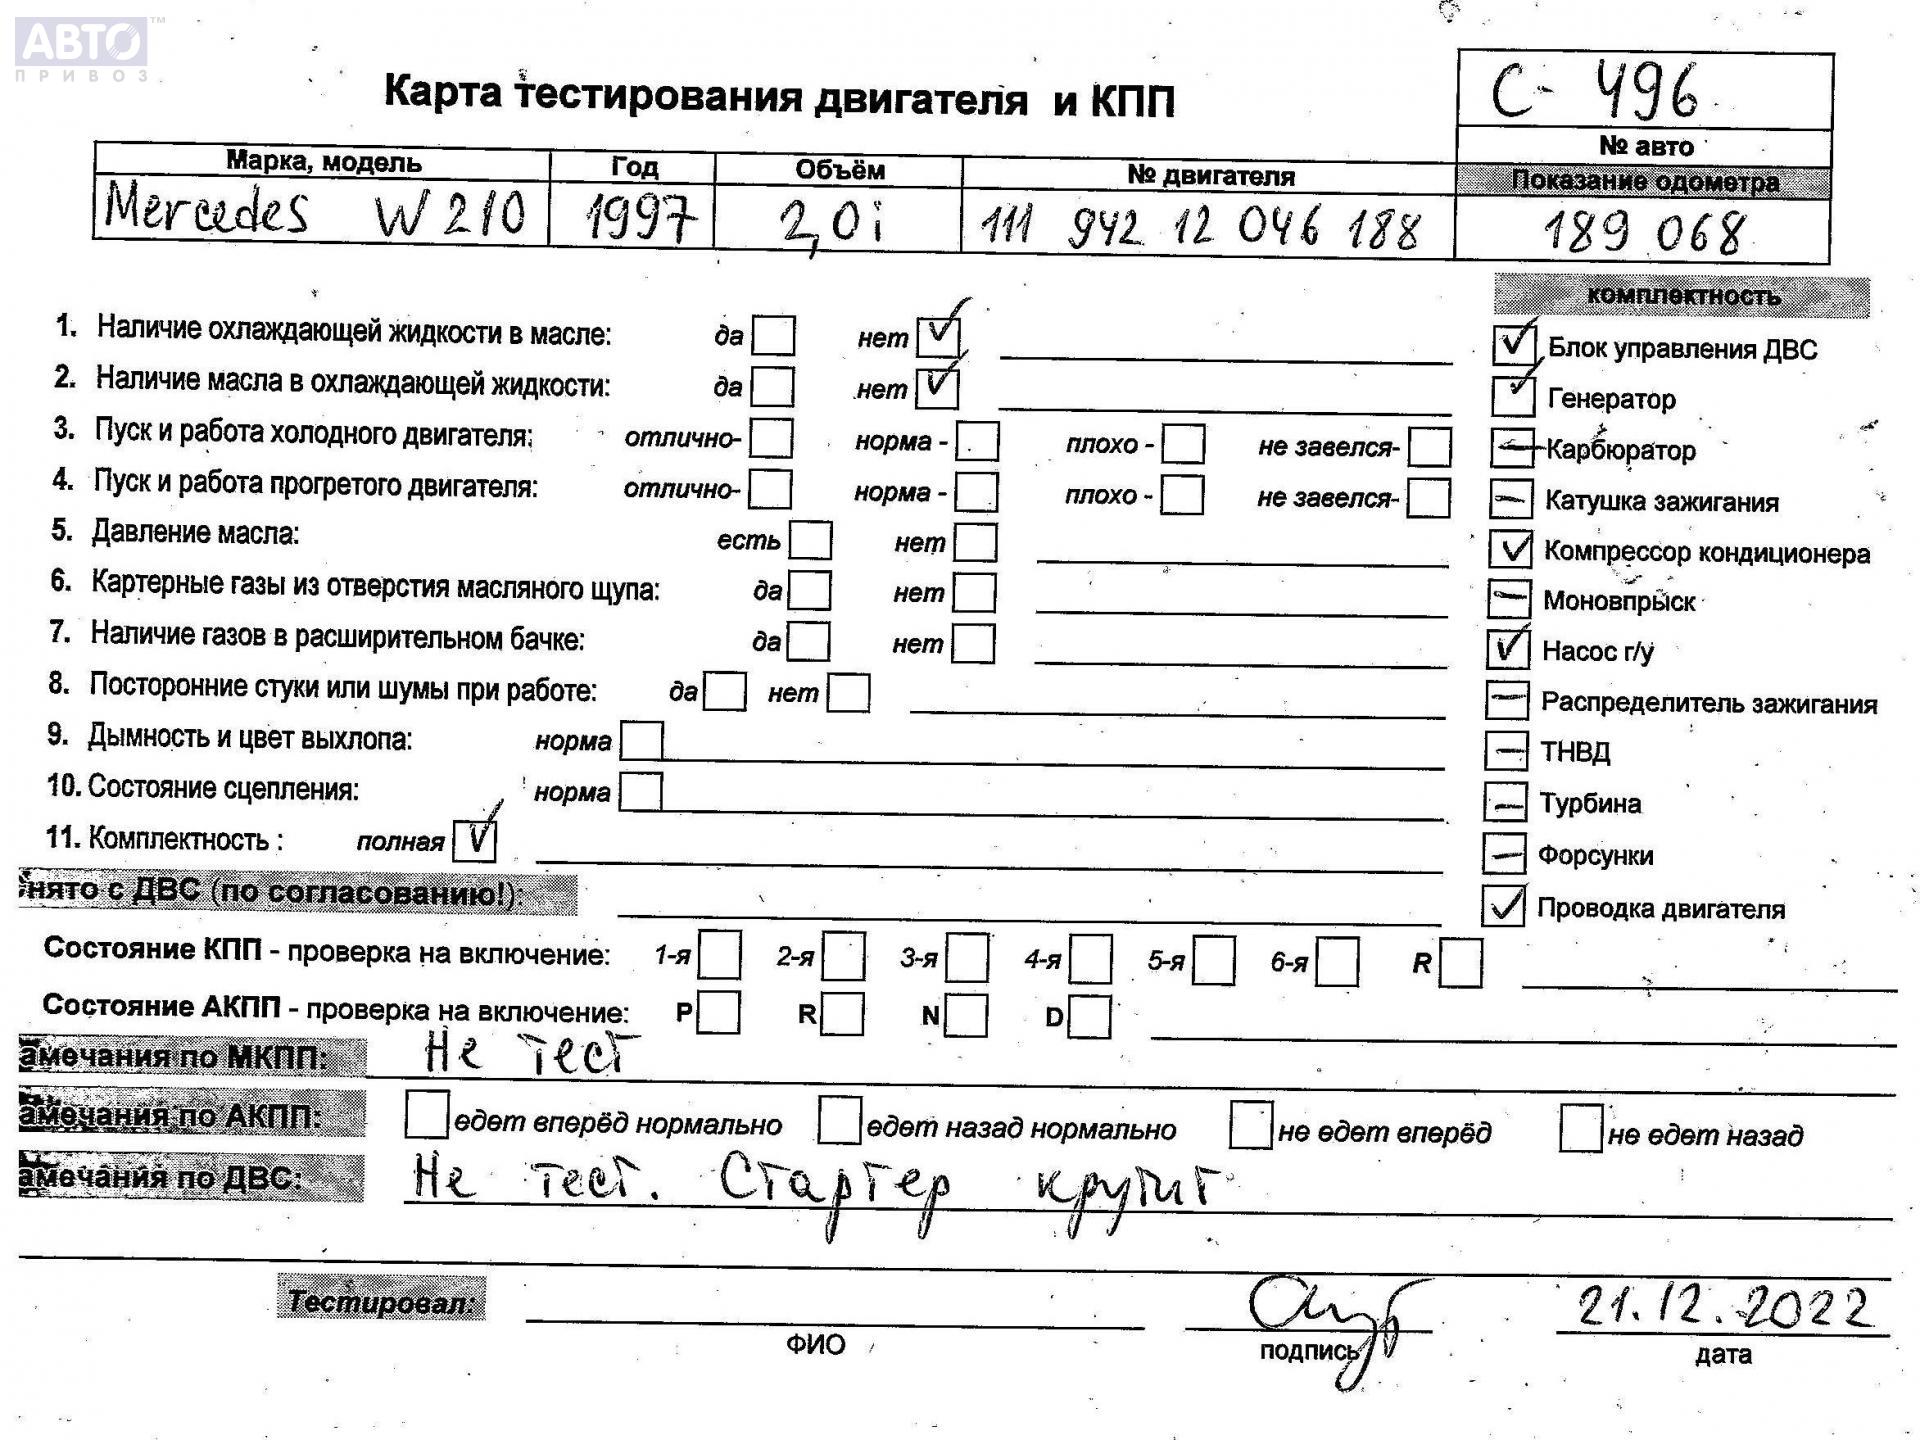 АВТО™
ПРИВОЗ
Карта тестирования двигателя и КПП
С- 496
№ авто
Марка, модель Год Объём № двигателя Показание одометра
Mercedes W210 1997 2,0i 111 942 12 046 188 189 068
комплектность
1. Наличие охлаждающей жидкости в масле: да нет ✓
✓ Блок управления ДВС
2. Наличие масла в охлаждающей жидкости: да нет ✓
✓ Генератор
3. Пуск и работа холодного двигателя: отлично- норма - плохо - не завелся-
— Карбюратор
4. Пуск и работа прогретого двигателя: отлично- норма - плохо - не завелся-
— Катушка зажигания
5. Давление масла: есть нет
✓ Компрессор кондиционера
6. Картерные газы из отверстия масляного щупа: да нет
— Моновпрыск
7. Наличие газов в расширительном бачке: да нет
✓ Насос г/у
8. Посторонние стуки или шумы при работе: да нет
— Распределитель зажигания
9. Дымность и цвет выхлопа: норма
— ТНВД
10. Состояние сцепления: норма
— Турбина
11. Комплектность : полная ✓
— Форсунки
нято с ДВС (по согласованию!):
✓ Проводка двигателя
Состояние КПП - проверка на включение: 1-я 2-я 3-я 4-я 5-я 6-я R
Состояние АКПП - проверка на включение: P R N D
амечания по МКПП: Не тест
амечания по АКПП: едет вперёд нормально едет назад нормально не едет вперёд не едет назад
амечания по ДВС: Не тест. Стартер крутит
Тестировал: 21.12.2022
ФИО подпись дата